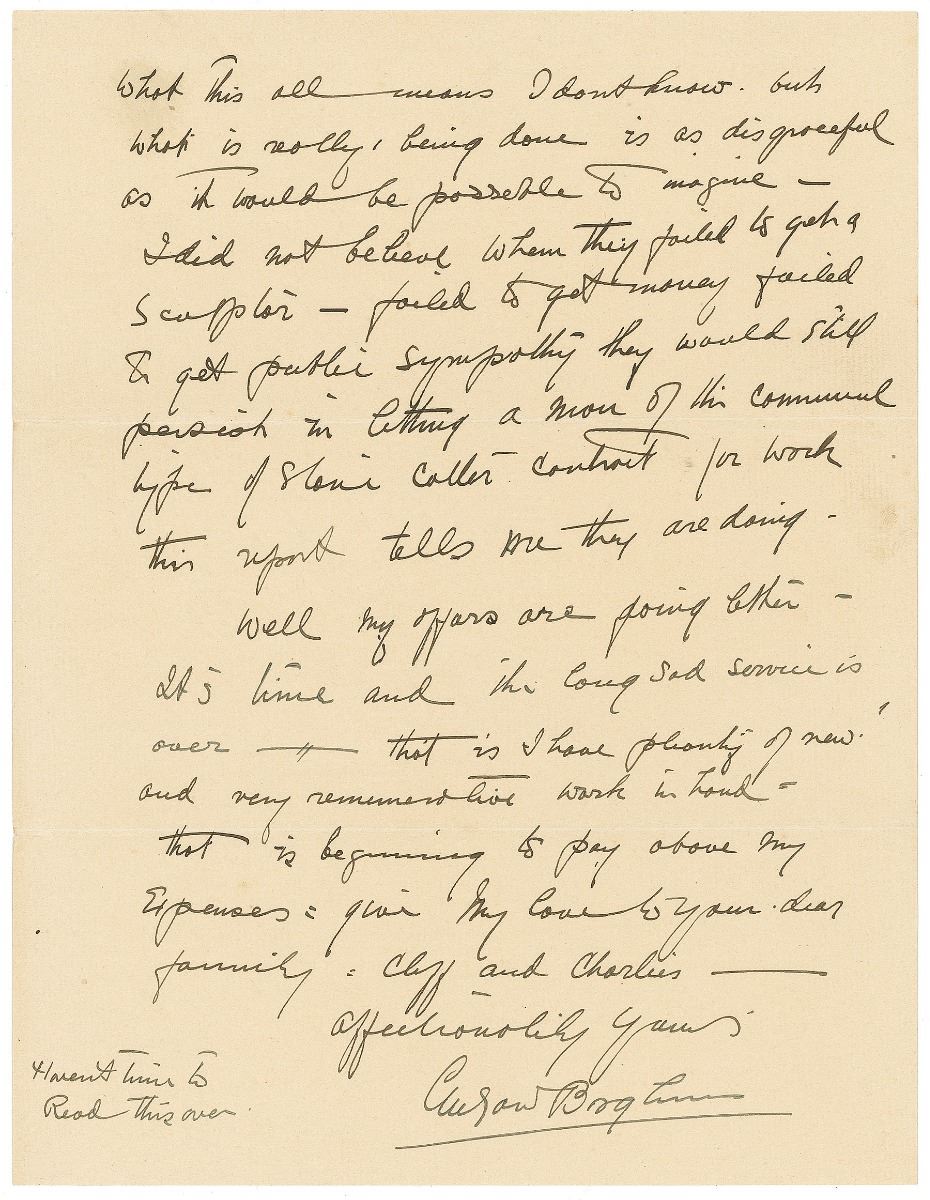 What this all means I dont know. but
what is really, being done is as disgraceful
as it would be possible to imagine —
I did not believe when they failed to get a
Sculptor — failed to get money failed
to get public sympathy they would still
persist in letting a man of this
type of Stone Cutter contract for work
this report tells me they are doing -
Well my affars are going better -
It's time and the long sad service is
over — " — that is I have plenty of new!
and very remunerative work in hand =
that is beginning to pay above my
Expenses = give my love to your dear
family = Cliff and Charlies —
affectionatily yours
Gutzon Borglum
Havent time to
Read this over.